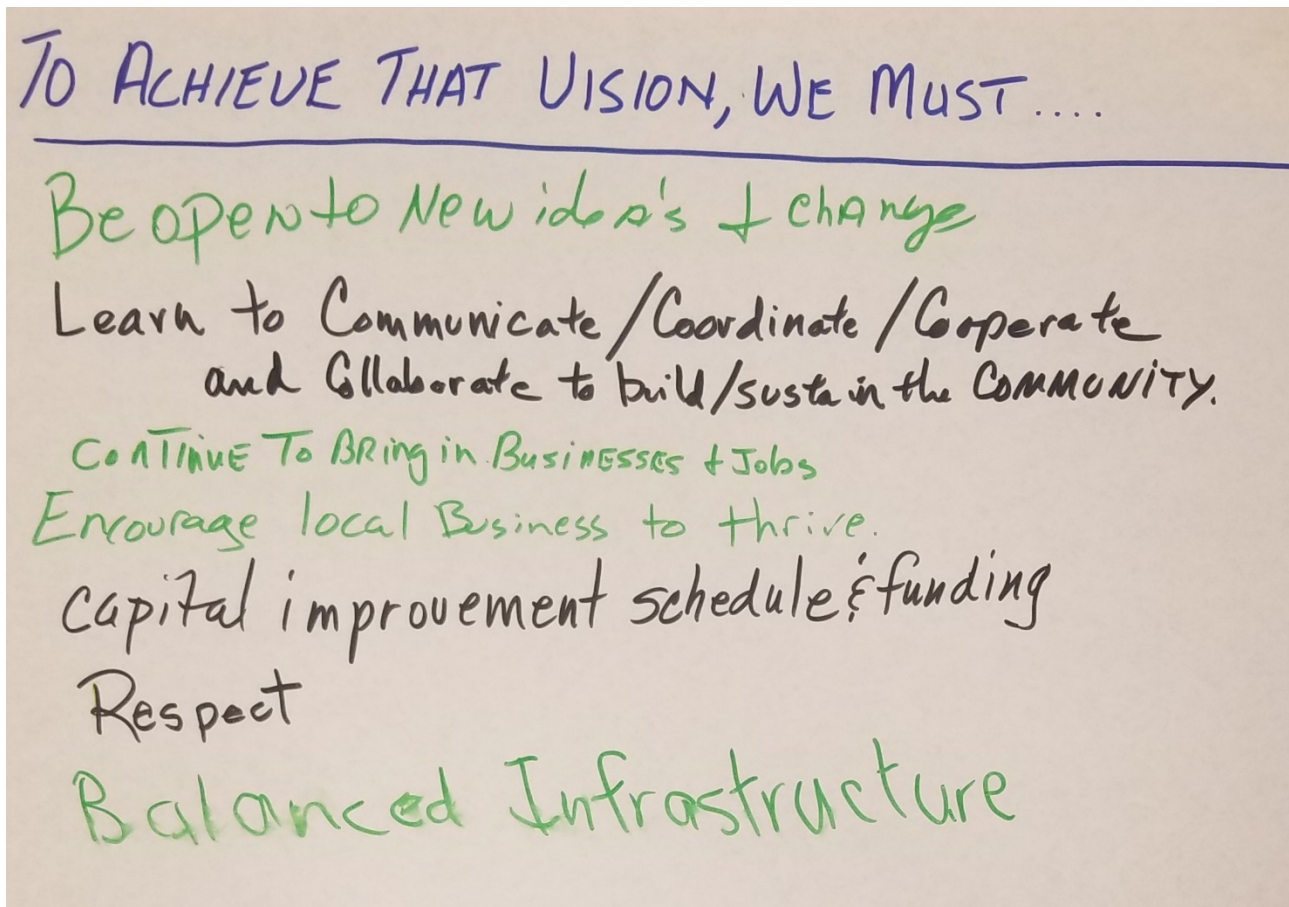 TO ACHIEVE THAT VISION, WE MUST....
Be open to New idea's + change
Learn to Communicate/Coordinate/Cooperate
and Collaborate to build/sustain the COMMUNITY.
CONTINUE TO BRing in BusiNESSES + Jobs
Encourage local Business to thrive.
capital improvement schedule & funding
Respect
Balanced Infrastructure